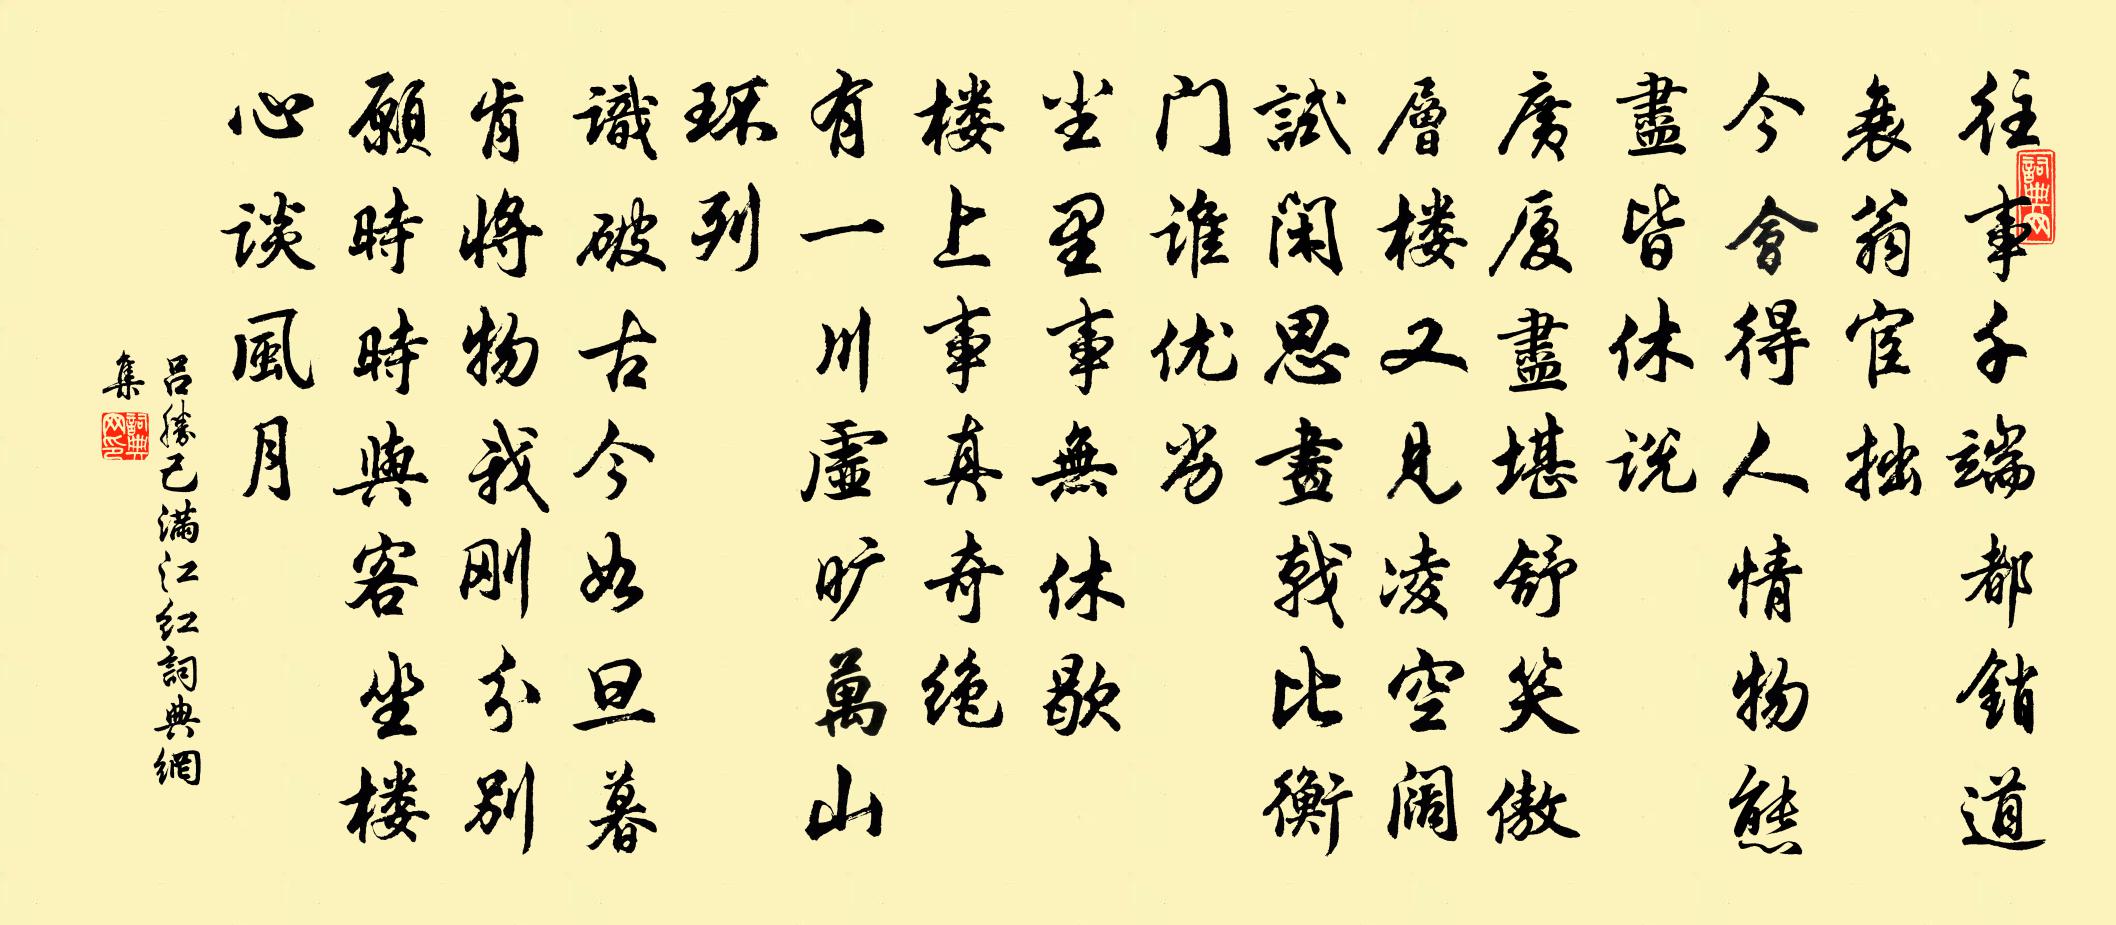 往事千端都銷道
衰翁宦拙
今會得人情物態
盡皆休说
广厦盡堪舒笑傲
層楼又見凌空阔
試闲思畫戟比衡
门谁优劣
尘里事無休歇
楼上事真奇绝
有一川虛旷萬山
环列
識破古今如旦暮
肯將物我刚分别
願時時與客坐楼
心谈風月
吕勝己满江红詞典網
集
詞典网
詞典网印